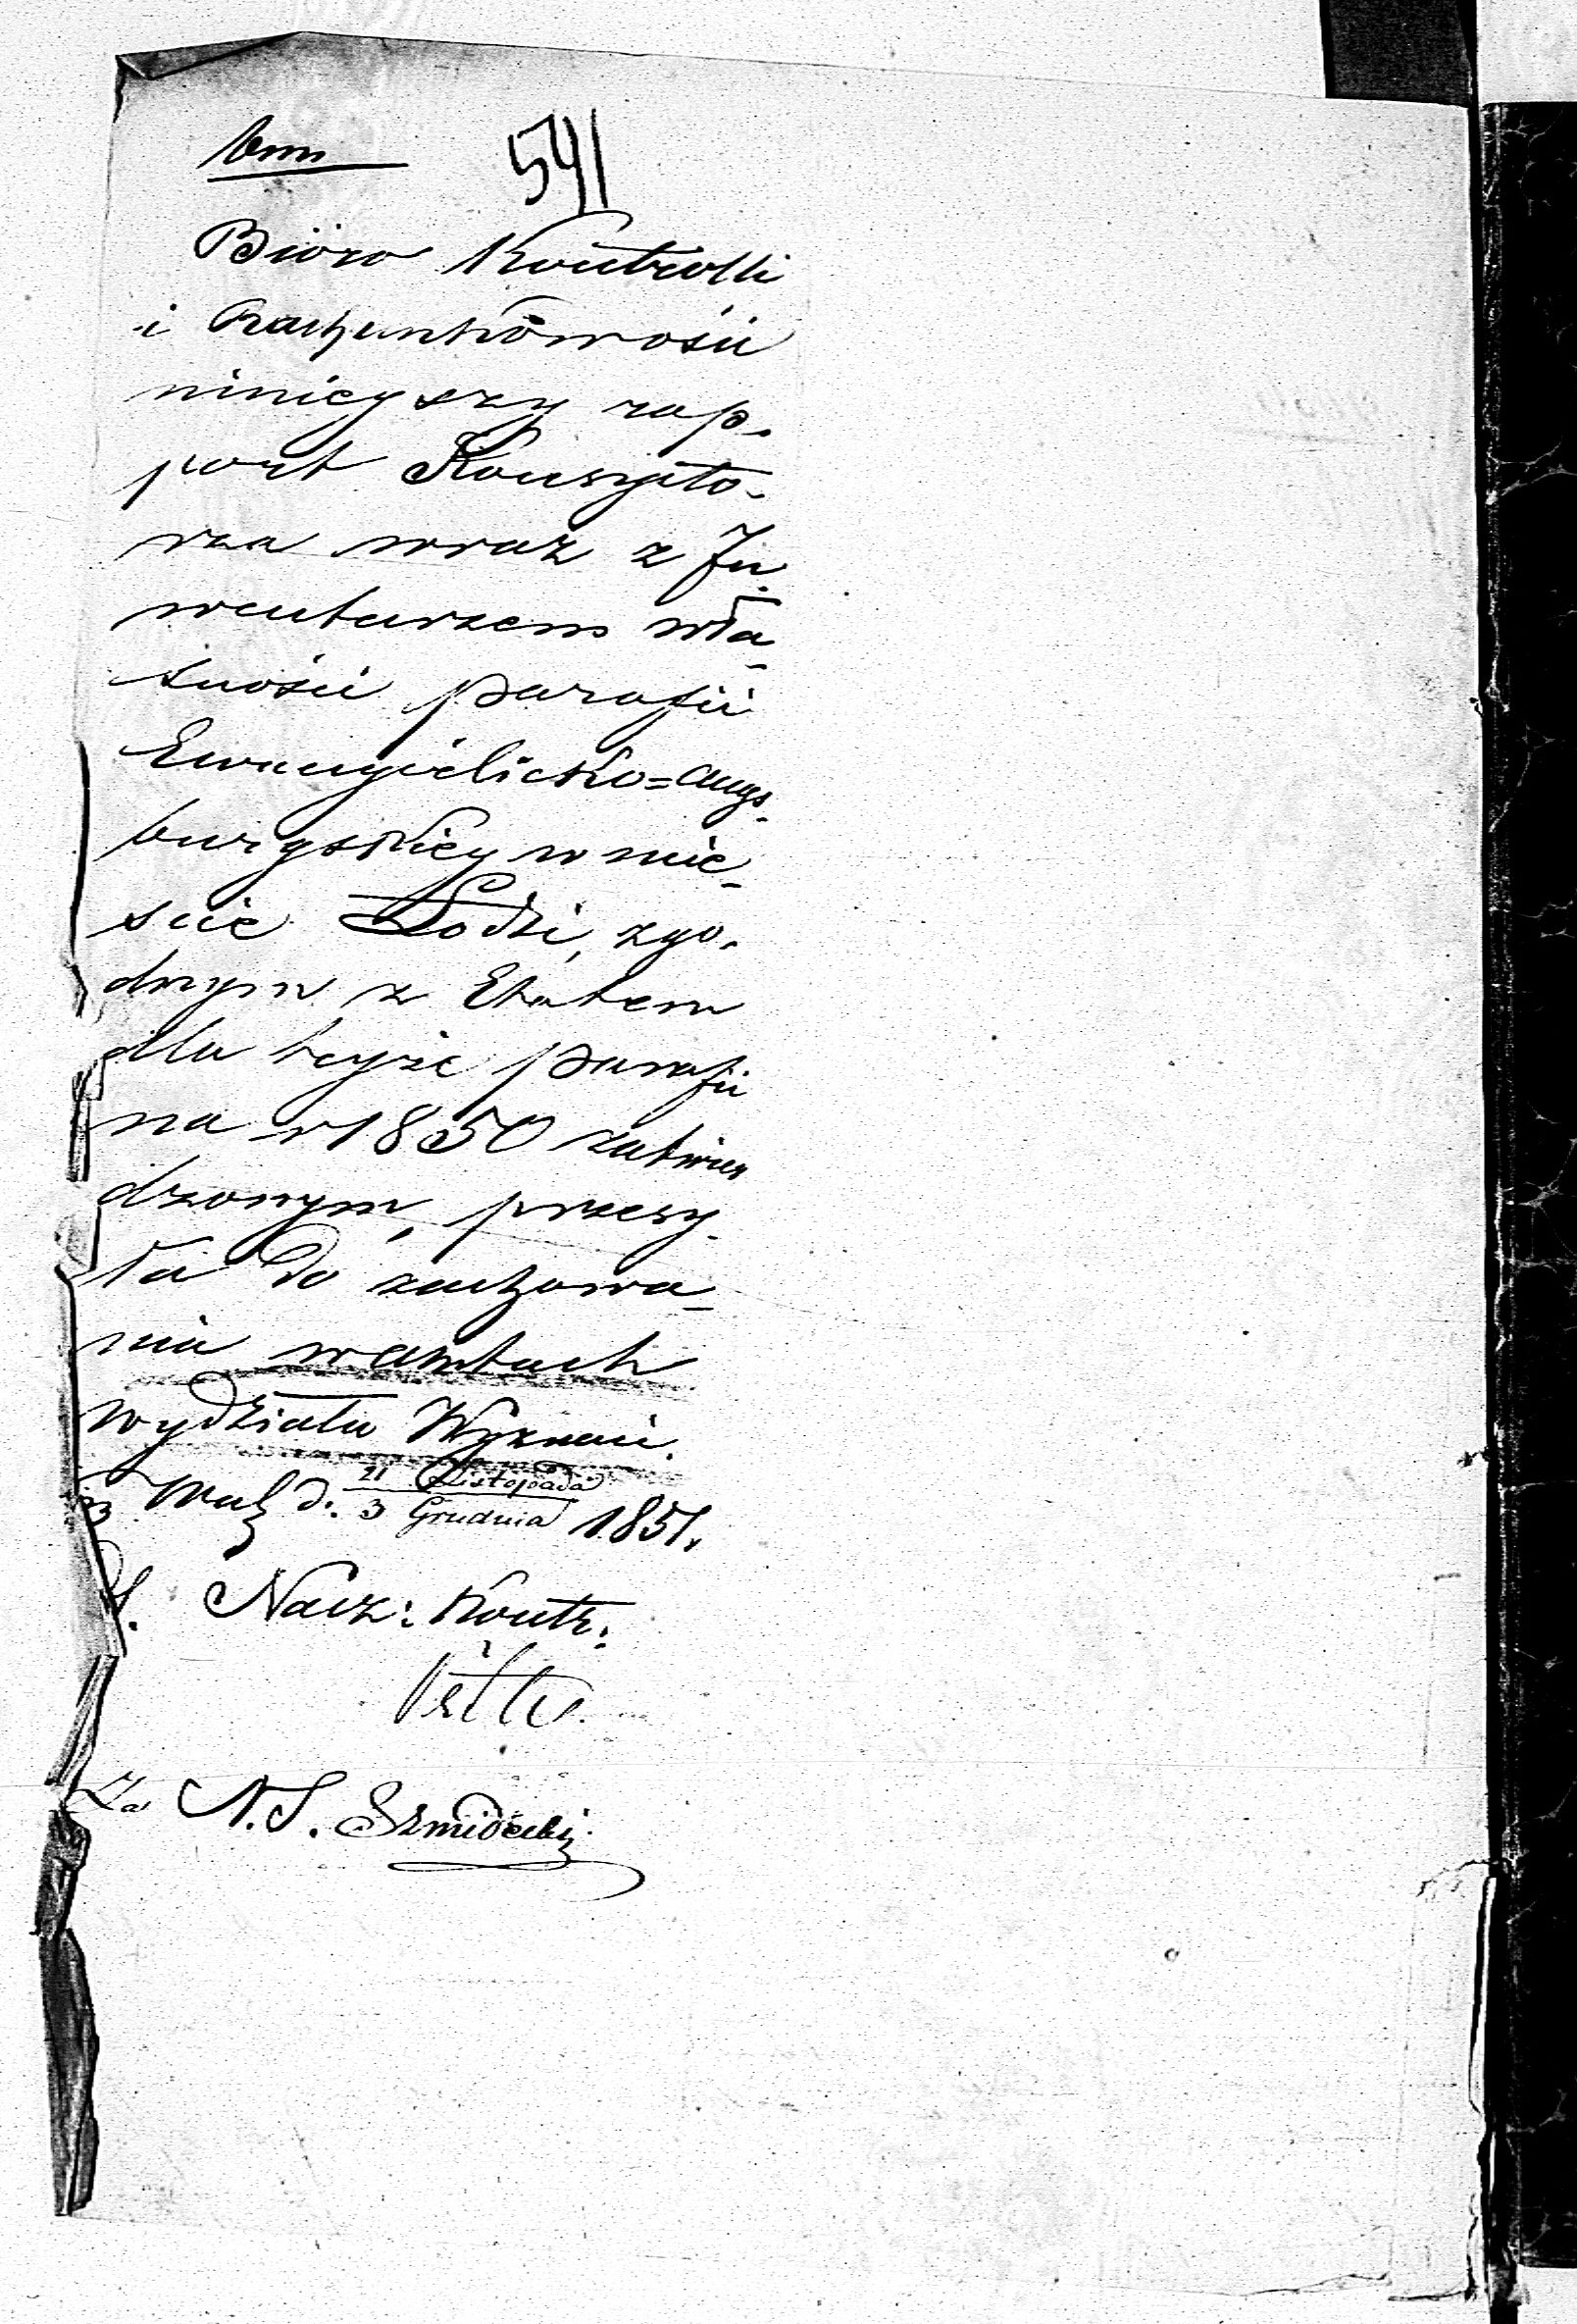 541
Biōro Kontrolli
i Rachunkowości
ninieyszy rap-
port Konsysto-
rza wraz z In-
wentarzem wła-
sności parafii
Ewangielicko=Augs-
burgskiey w mie-
scie Łodzi, zgo-
dnym z Etatem
dla teyże parafii
na r 1850 zatwier
dzonym, przesy-
ła do zachowa-
nia w aktach
wydziału Wyznań.
Wa d. 21 Listopada
3 Grudnia 1851.
Nacz: Kontr:
Za N.S. Szmidecki